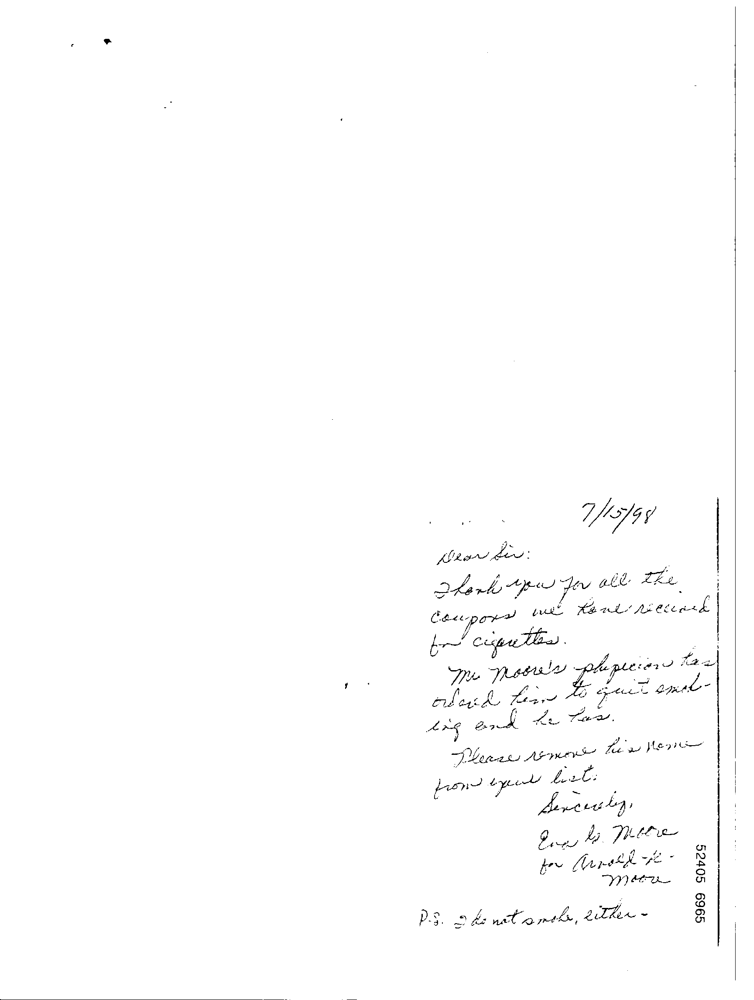 7/15/98
Dear Sir:
Thank you for all the
coupons we have received
for cigarettes.
Mr Moore's physician has
ordered him to quit smok-
ing and he has.
Please remove his name
from your list.
Sincerely,
Eva G. Moore
for Arnold K.
Moore
P.S. I do not smoke, either-
52405 6965